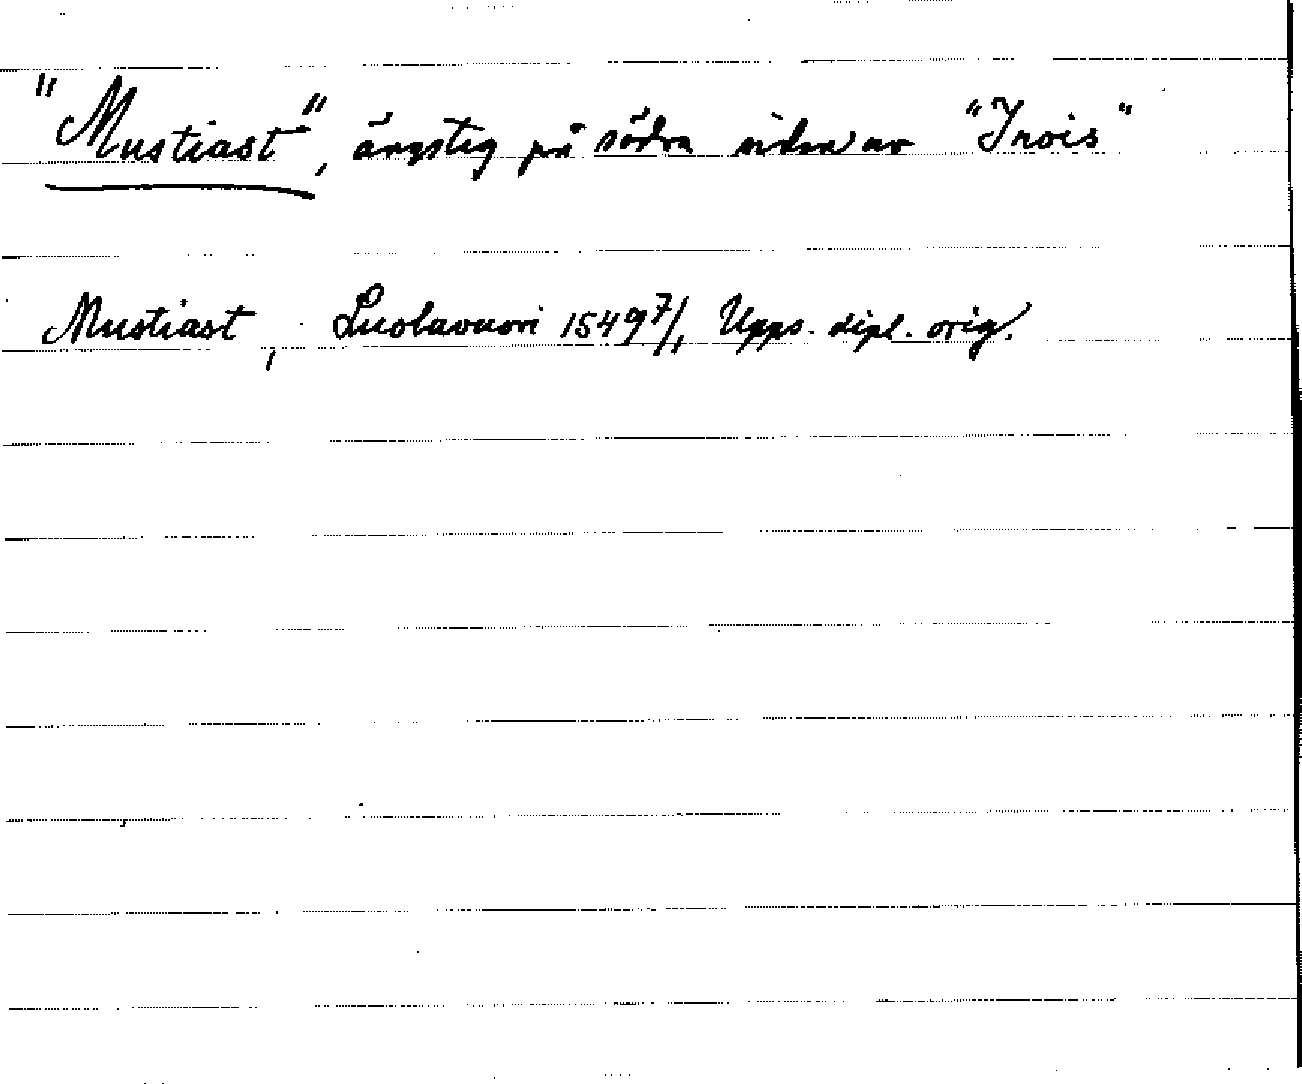 "Mustiast", ängstig på södra sidan av "Inois"
Mustiast, Luolavuori 1549 7/1, Upps. dipl. orig.